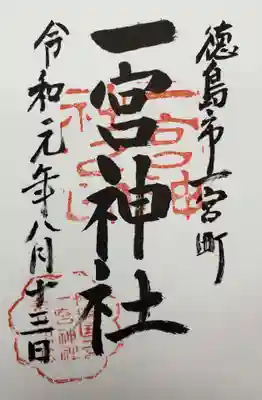 徳島市一宮町
一宮神社
令和元年八月十三日